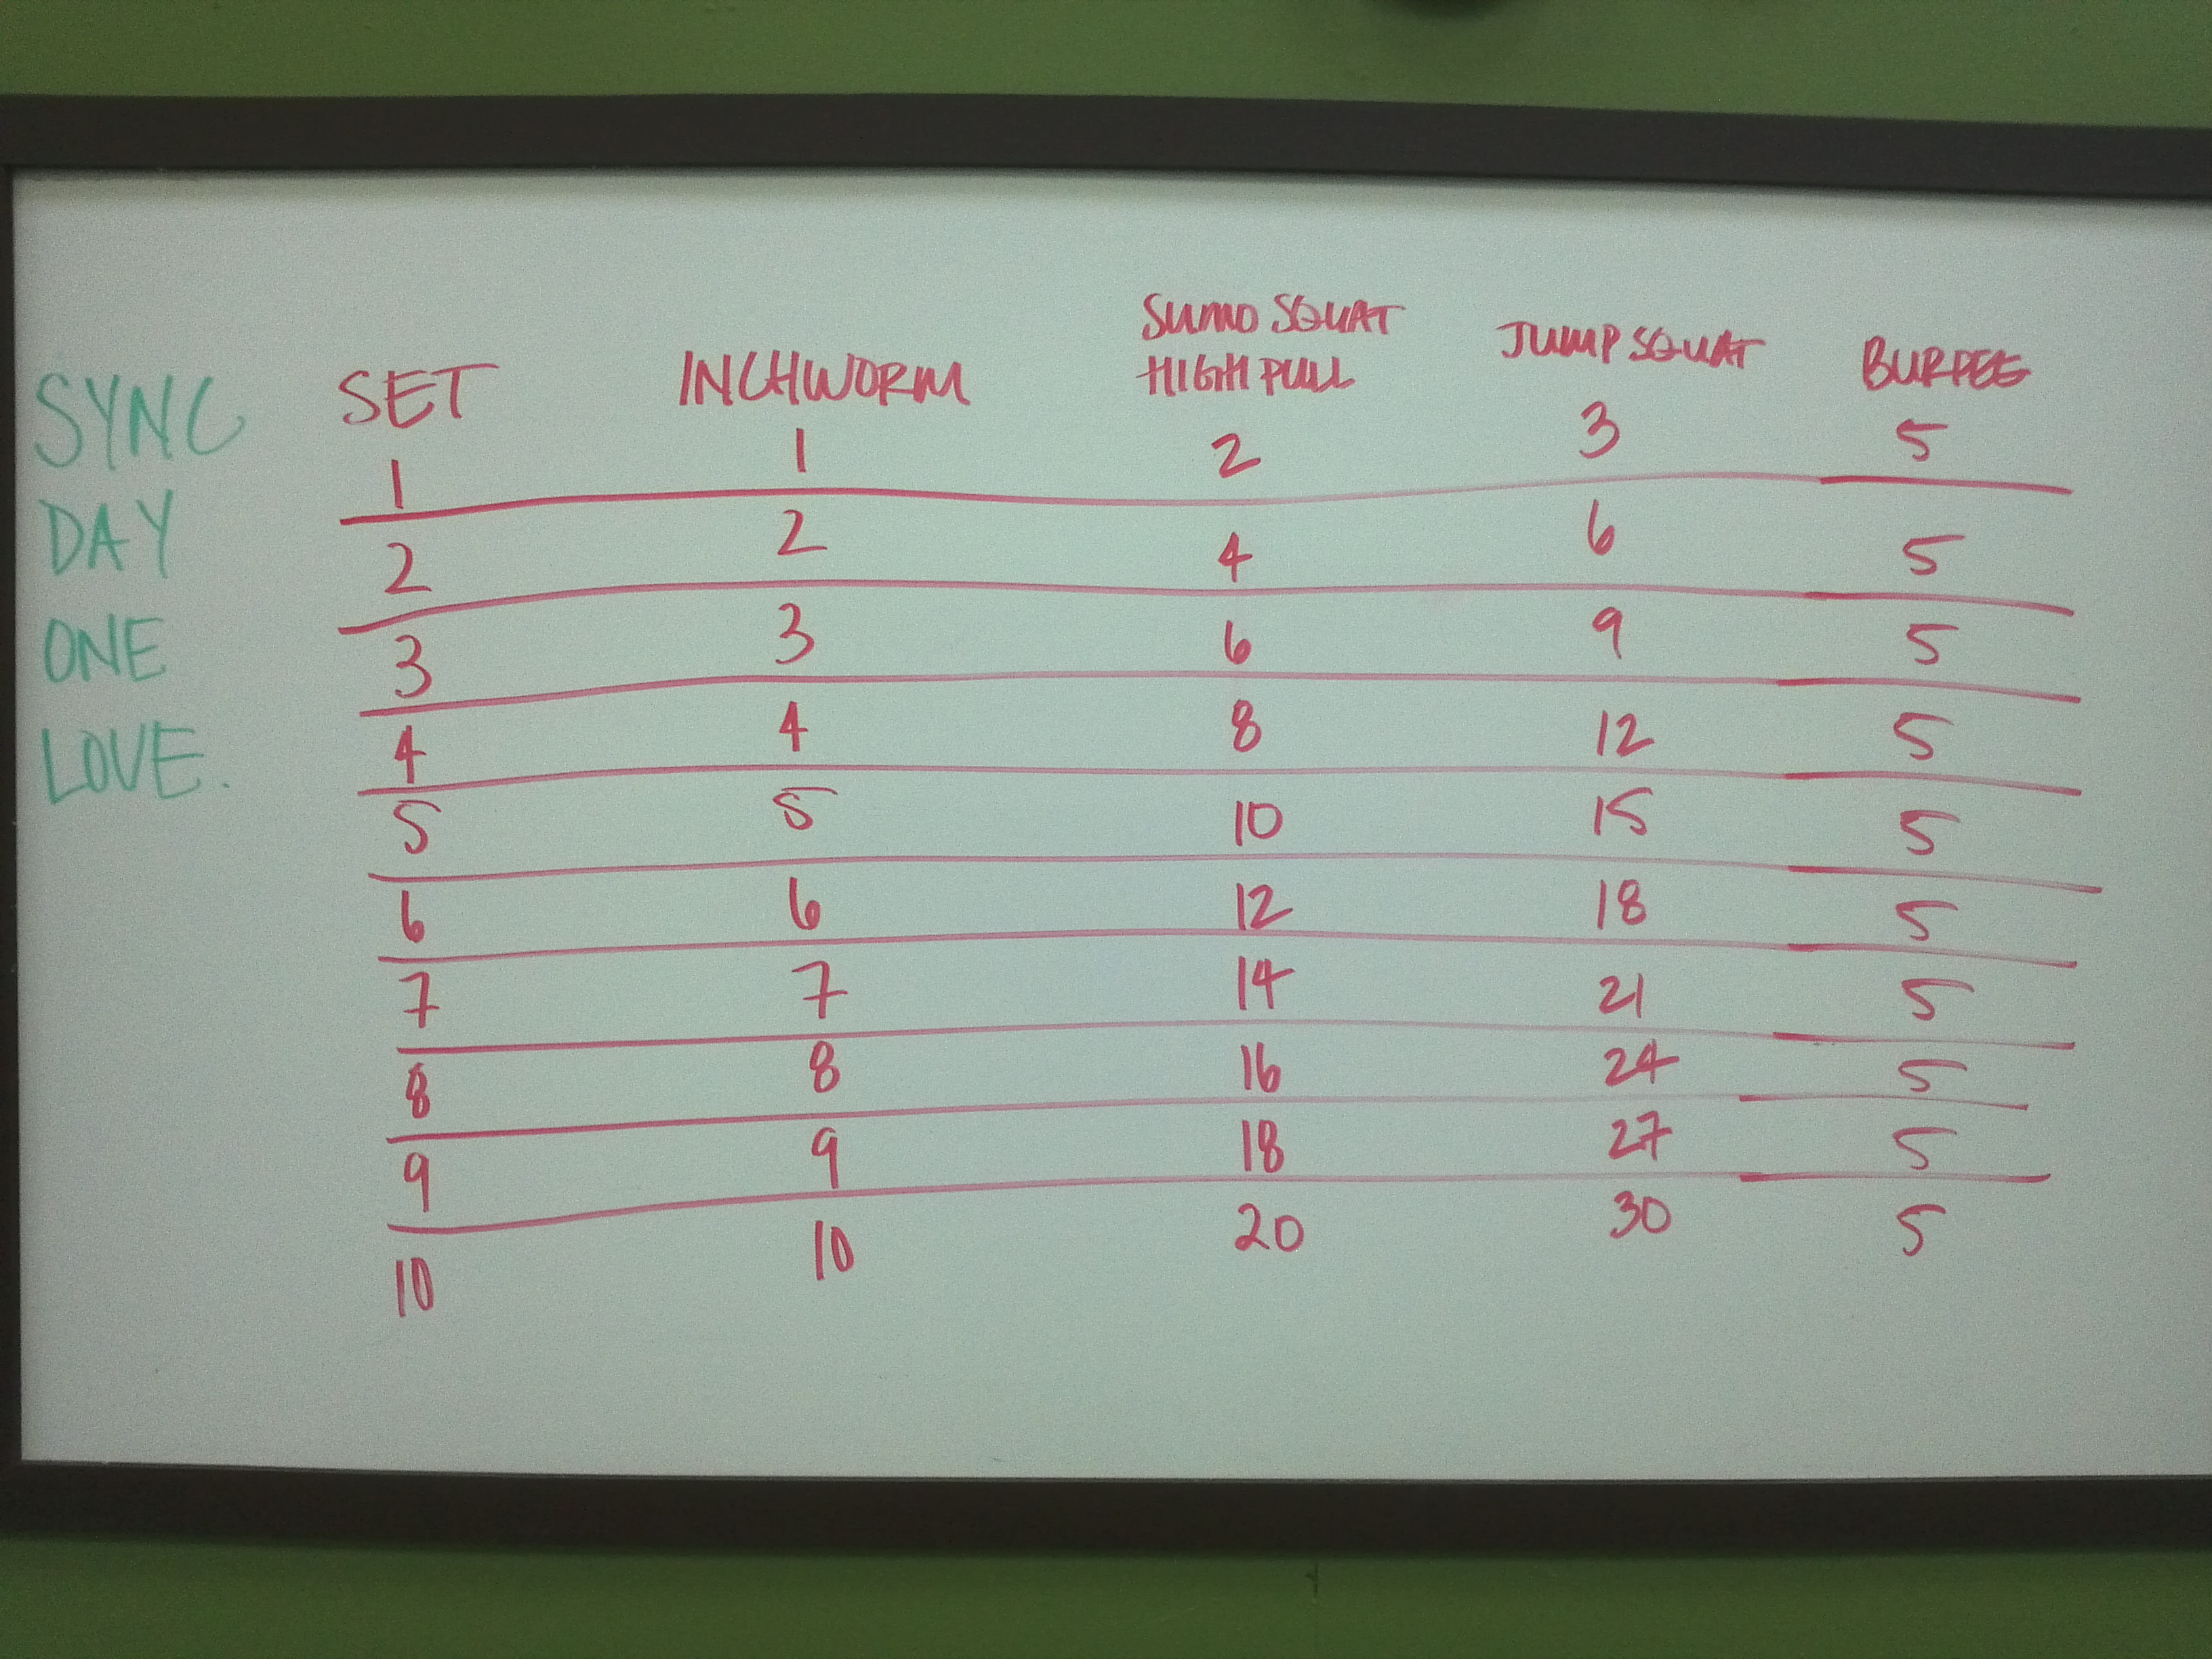 SYNC
DAY
ONE
LOVE.
SET INCHWORM SUMO SQUAT HIGH PULL JUMP SQUAT BURPEE
1 1 2 3 5
2 2 4 6 5
3 3 6 9 5
4 4 8 12 5
5 5 10 15 5
6 6 12 18 5
7 7 14 21 5
8 8 16 24 5
9 9 18 27 5
10 10 20 30 5